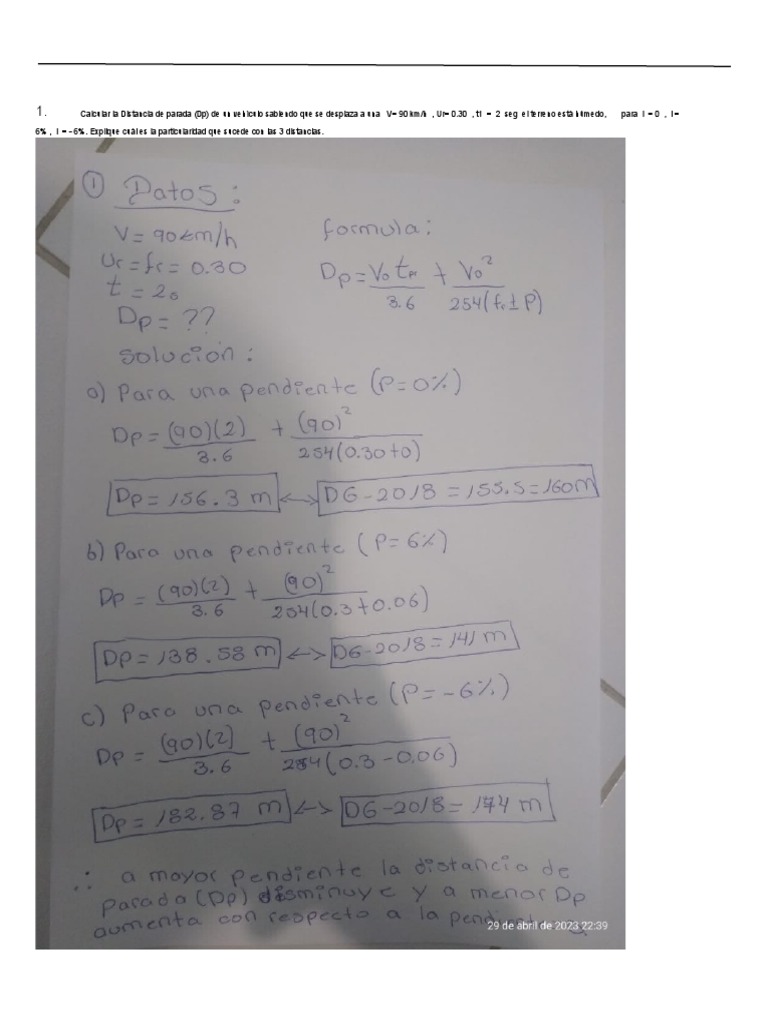 1. Calcular la Distancia de parada (Dp) de un vehiculo sabiendo que se desplaza a una V= 90 km/h , Ur= 0.30 , t1 = 2 seg el terreno está húmedo, para I = 0 , I=
6% , I = -6%. Explique cuál es la particularidad que sucede con las 3 distancias.
① Datos:
V = 90 km/h
Ur = fr = 0.30
t = 2s
Dp = ??
formula:
Dp = Vo tp / 3.6 + Vo² / 254(fr ± P)
solución:
a) Para una pendiente (P=0%)
Dp = (90)(2) / 3.6 + (90)² / 254(0.30+0)
Dp = 156.3 m <-> DG-2018 = 155.5 = 160m
b) Para una pendiente (P= 6%)
Dp = (90)(2) / 3.6 + (90)² / 254(0.3+0.06)
Dp = 138.58 m <-> DG-2018 = 141 m
c) Para una pendiente (P= -6%)
Dp = (90)(2) / 3.6 + (90)² / 254(0.3-0.06)
Dp = 182.87 m <-> DG-2018 = 174 m
∴ a mayor pendiente la distancia de
parada (Dp) disminuye y a menor Dp
aumenta con respecto a la pendiente
29 de abril de 2023 22:39